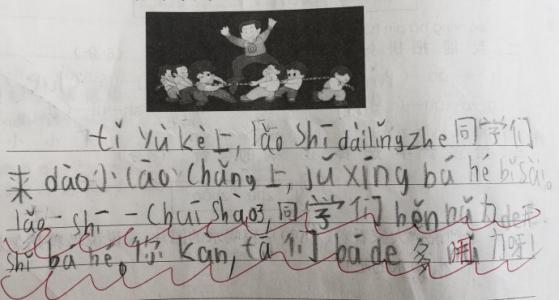 tǐ yù kè上,lǎo shī dàilǐngzhe同学们
来dào小cāo chǎng上,jǔ xíng bá hé bǐsài。
lǎo shī一chuī shào,同学们hěnnǔ力de
shǐ bá hé。你kàn,tā们bá de多 力呀!